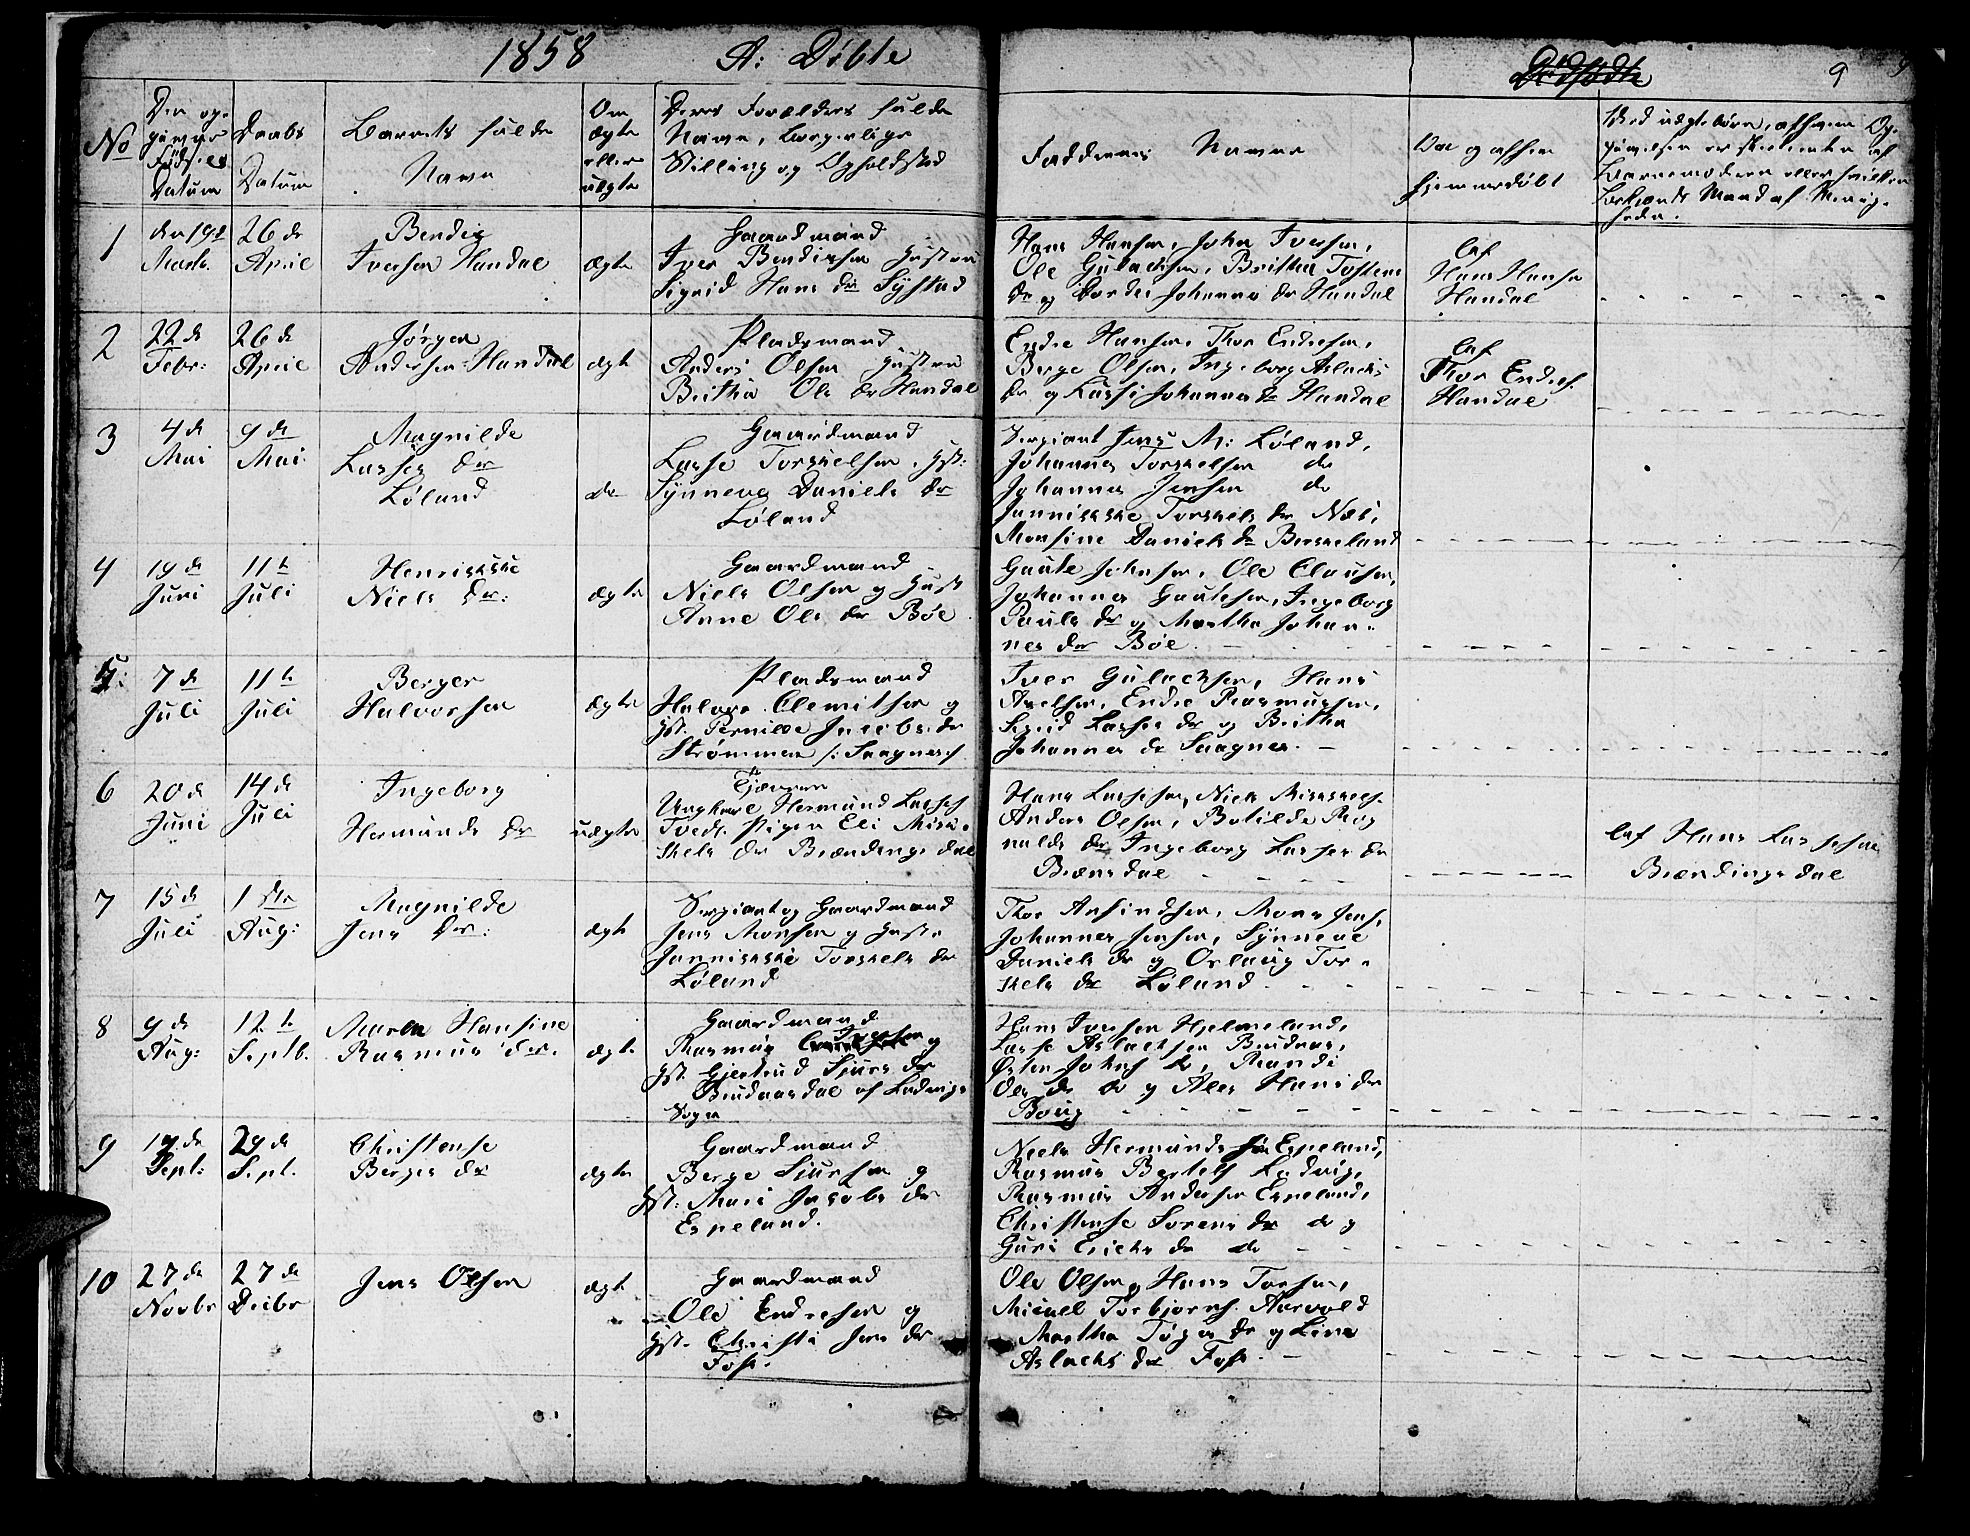 1858 A: Döbte
Dødfødte
9
No
Den op-
givne
Fødsels
Datum
Daabs
Datum
Barnets fulde
Navn
Om
ægte
eller
uægte
Deres Forældres fulde
Navne, borgerlige
Stilling og Opholdsted
Faddernes Navne
hjemmedøbt
Ved uægte børn, af hvem Op-
givelsen er skeet enten af
Barnemoderen eller hvilken
bekjendt Mand af Menig-
heden.
1
den 19d
Marts.
26 de
April
Bendix
Iversen Handal
ægte
Gaardmand
Iver Bendixsen Hustru
Sigrid Hans dr Systad
Hans Hansen, John Iversen,
Ole Gulachsen, Britha Tostens
dr og Johanne dr Handal
af
Hans Hansen
Handal
2
22 de
Febr:
26 de
April
Jørgen
Andersen Handal
ægte
Pladsmand
Anders Olsen Hustru
Britha Ols dr Handal
Endre Hansen, Thor Endresen,
Berge Olsen, Ingeborg Aslachs
dr og Johannes dr Handal
af
Thor Endres.
Handal
3
4 de
Mai
9 de
Mai.
Magnilde
Lasses dr
Løland
do
Gaardmand
Lasse Torkelsen, Hst:
Synneva Daniels dr
Løland
Sergiant Jens M: Løland,
Johannes Torkelsen do
Johannes Jensen do
Jannikke Torkels dr Næs,
Monsine Daniels dr Birkeland
4
19 de
Juni
11te
Juli
Henrikke
Niels Dr:
ægte
Gaardmand
Niels Olsen og Hust
Anne Ols dr Böe
Gaute Johnsen, Ole Clausen,
Johannes Gautesen, Ingeborg
Pauls dr og Martha Johan-
nes dr Böe
5:
7 de
Juli
11te
Juli
Berger
Halvorsen
ægte
Pladsmand
Halvor Clemitsen og
Hst. Pernille Jacobs dr
Strømmen /: Saagnes :/
Iver Gulachsen, Hans
Axelsen, Endre Rasmussen,
Sigrid Lasses dr og Britha
Johannes dr Saagnes.
6
20 de
Juni
14 de
Juli
Ingeborg
Hermunds dr
uægte
Tjenere
Ungkarl Hermund Lasses.
Tvedt. Pigen Eli Mik-
kels dr Brændingsdal
Hans Lassesen, Niels Mikkels.
Anders Olsen, Botilde Rog-
nalds dr Ingeborg Lasses dr
Brænsdal
af Hans Lassesen
Brændingsdal
7
15 de
Juli
1 ste
Aug:
Magnilde
Jens Dr:
ægte
Sergiant og Gaardmand
Jens Monsen og Hustr
Jannikke Torkels dr
Løland
Thor Arsindsen, Mons Jens.
Johannes Jensen, Synneve
Daniels dr og Oslaug Tor-
kels dr Løland
8
9 de
Aug:
12te
Septb.
Maren Hansine
Rasmus dr.
ægte
Gaardmand
Rasmus Iversen og
Hst. Gjertrud Sjurs dr
af Ladvigs
Sogn
Hans Iversen Hjelmeland,
Lasse Aslachsen
Østen Johns do, Randi
Ols dr do og Ales Hans dr
Boug
9
19 de
Sept:
29 de
Sept.
Christense
Berges dr
ægte
Gaardmand
Berge Sjursen og
Hst: Mari Jacobs dr
Espeland.
Niels Hermundsen Espeland,
Rasmus Bertels Ladvig,
Rasmus Andersen Espeland,
Christense Sørens dr do og
Guri Erichs dr do
10
27 de
Novbr
27 de
Decbr
Jens Olsen
ægt
Gaardmand
Ole Endresen og
Hst. Christi Jens dr
Foss.
Ole Olsen, Hans Torsen,
Michel Torbjørns. Aarvold
Martha Tøger dr og Lina
Aslachs dr Foss.